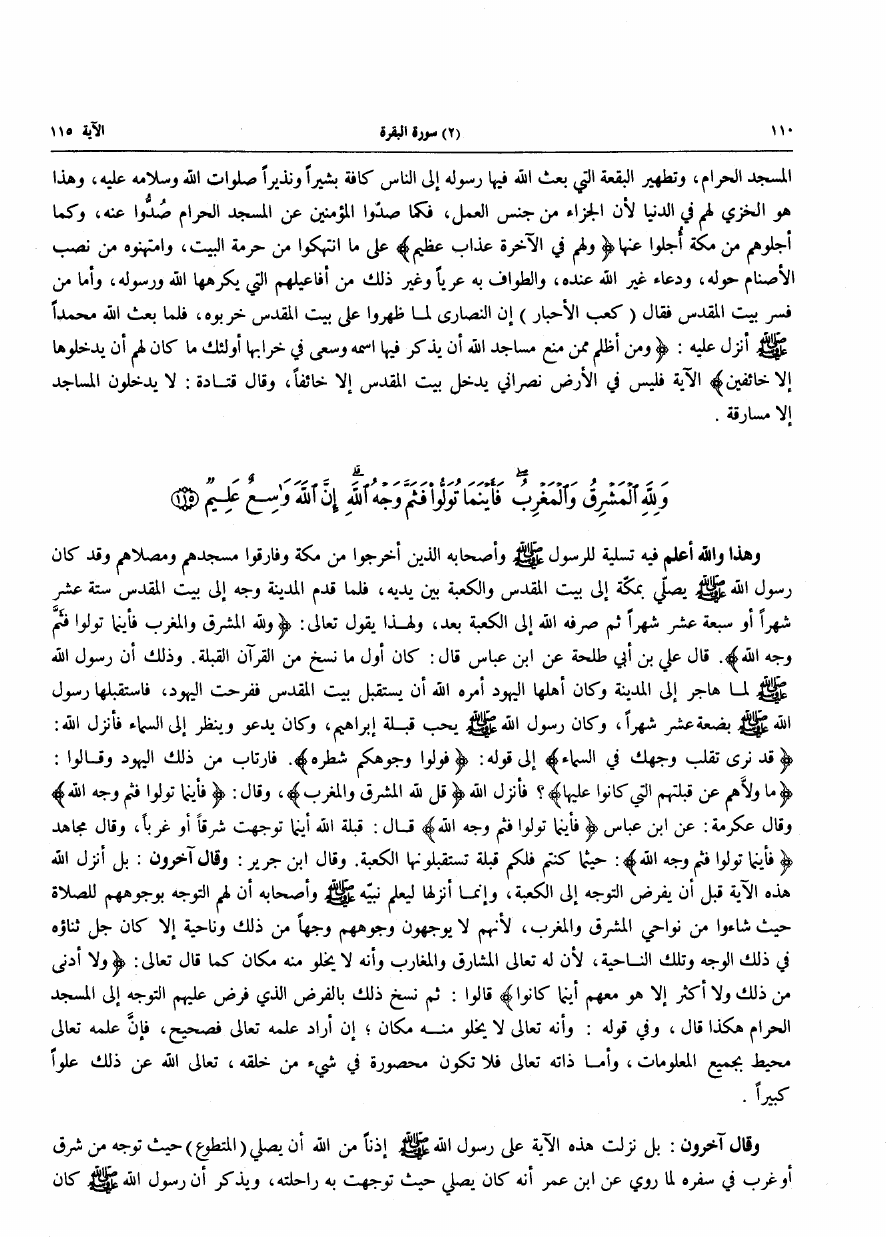 ١١٠ (٢) سورة البقرة الآية ١١٥
المسجد الحرام، وتطهير البقعة التي بعث الله فيها رسوله إلى الناس كافة بشيراً ونذيراً صلوات الله وسلامه عليه، وهذا
هو الخزي لهم في الدنيا لأن الجزاء من جنس العمل، فكما صدّوا المؤمنين عن المسجد الحرام صُدُّوا عنه، وكما
أجلوهم من مكة أُجلوا عنها ﴿ولهم في الآخرة عذاب عظيم﴾ على ما انتهكوا من حرمة البيت، وامتهنوه من نصب
الأصنام حوله، ودعاء غير الله عنده، والطواف به عرياً وغير ذلك من أفاعيلهم التي يكرهها الله ورسوله، وأما من
فسر بيت المقدس فقال (كعب الأحبار) إن النصارى لمـا ظهروا على بيت المقدس خربوه، فلما بعث الله محمداً
ﷺ أنزل عليه : ﴿ومن أظلم ممن منع مساجد الله أن يذكر فيها اسمه وسعى في خرابها أولئك ما كان لهم أن يدخلوها
إلا خائفين﴾ الآية فليس في الأرض نصراني يدخل بيت المقدس إلا خائفاً، وقال قتـادة : لا يدخلون المساجد
إلا مسارقة .
وَلِلَّهِ ٱلْمَشْرِقُ وَٱلْمَغْرِبُ ۖ فَأَيْنَمَا تُوَلُّوا۟ فَثَمَّ وَجْهُ ٱللَّهِ ۚ إِنَّ ٱللَّهَ وَٰسِعٌ عَلِيمٌ ﴿١١٥﴾
وهذا والله أعلم فيه تسلية للرسول ﷺ وأصحابه الذين أخرجوا من مكة وفارقوا مسجدهم ومصلاهم وقد كان
رسول الله ﷺ يصلّي بمكّة إلى بيت المقدس والكعبة بين يديه، فلما قدم المدينة وجه إلى بيت المقدس ستة عشر
شهراً أو سبعة عشر شهراً ثم صرفه الله إلى الكعبة بعد، ولهـذا يقول تعالى: ﴿ولله المشرق والمغرب فأينما تولوا فَثَمَّ
وجه الله﴾. قال علي بن أبي طلحة عن ابن عباس قال: كان أول ما نسخ من القرآن القبلة. وذلك أن رسول الله
ﷺ لمـا هاجر إلى المدينة وكان أهلها اليهود أمره الله أن يستقبل بيت المقدس ففرحت اليهود، فاستقبلها رسول
الله ﷺ بضعة عشر شهراً، وكان رسول الله ﷺ يحب قبـلة إبراهيم، وكان يدعو وينظر إلى السماء فأنزل الله:
﴿قد نرى تقلب وجهك في السماء﴾ إلى قوله: ﴿فولوا وجوهكم شطره﴾. فارتاب من ذلك اليهود وقـالوا :
﴿ما ولاَّهم عن قبلتهم التي كانوا عليها﴾؟ فأنزل الله ﴿قل لله المشرق والمغرب﴾، وقال: ﴿فأينما تولوا فثم وجه الله﴾
وقال عكرمة: عن ابن عباس ﴿فأينما تولوا فثم وجه الله﴾ قـال: قبلة الله أينما توجهت شرقاً أو غرباً، وقال مجاهد
﴿فأينما تولوا فثم وجه الله﴾: حيثما كنتم فلكم قبلة تستقبلونها الكعبة. وقال ابن جرير: وقال آخرون : بل أنزل الله
هذه الآية قبل أن يفرض التوجه إلى الكعبة، وإنمـا أنزلها ليعلم نبيّه ﷺ وأصحابه أن لهم التوجه بوجوههم للصلاة
حيث شاءوا من نواحي المشرق والمغرب، لأنهم لا يوجهون وجوههم وجهاً من ذلك وناحية إلا كان جل ثناؤه
في ذلك الوجه وتلك النـاحية، لأن له تعالى المشارق والمغارب وأنه لا يخلو منه مكان كما قال تعالى: ﴿ولا أدنى
من ذلك ولا أكثر إلا هو معهم أينما كانوا﴾ قالوا : ثم نسخ ذلك بالفرض الذي فرض عليهم التوجه إلى المسجد
الحرام هكذا قال، وفي قوله : وأنه تعالى لا يخلو منـه مكان ؛ إن أراد علمه تعالى فصحيح، فإنَّ علمه تعالى
محيط بجميع المعلومات، وأمـا ذاته تعالى فلا تكون محصورة في شيء من خلقه، تعالى الله عن ذلك علواً
كبيراً .
وقال آخرون : بل نزلت هذه الآية على رسول الله ﷺ إذناً من الله أن يصلي (المتطوع) حيث توجه من شرق
أو غرب في سفره لما روي عن ابن عمر أنه كان يصلي حيث توجهت به راحلته، ويذكر أن رسول الله ﷺ كان